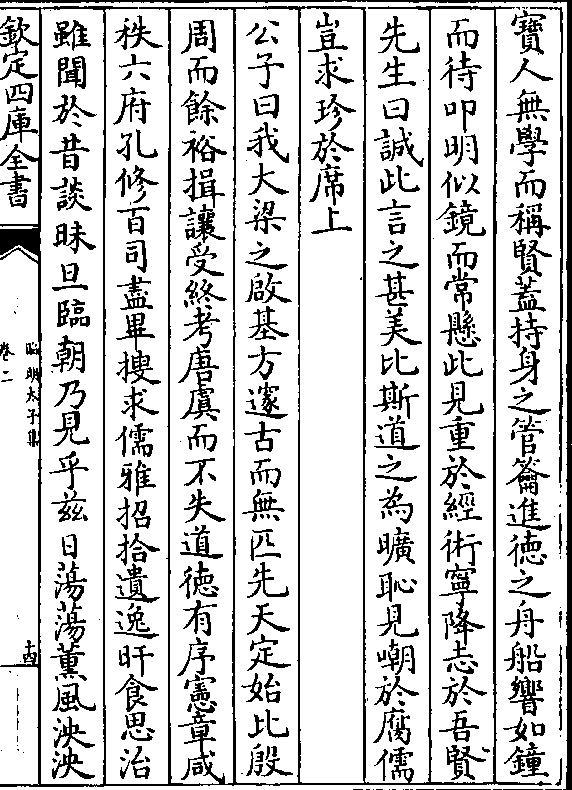 寶人無學而稱賢蓋持身之管籥進徳之舟船響如鐘
而待叩明似鏡而常懸此見重於經術寧降志於吾賢
先生曰誠此言之甚美比斯道之為曠恥見嘲於腐儒
豈求珍於席上
公子曰我大梁之啟基方邃古而無匹先天定始比殷
周而餘裕揖讓受終考唐虞而不失道徳有序憲章咸
秩六府孔修百司盡畢搜求儒雅招拾遺逸旰食思治
雖聞於昔談昧旦臨朝乃見乎兹日蕩蕩薰風泱泱
欽定四庫全書
昭明太子集
卷二
十四